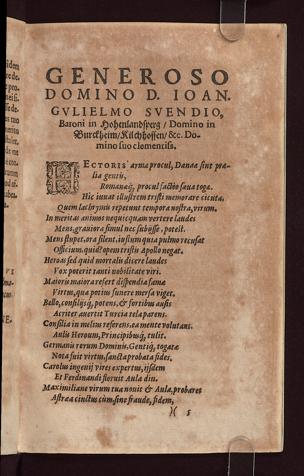 GENEROSO
DOMINO D. IOAN.
GVLIELMO SVENDIO,
Baroni in Hohenlandsperg / Domino in
Burckheim / Kilchhoffen / &c. Do-
mino suo clementiss.
HECTORIS arma procul, Danaæ sint præ-
lia gentis,
Romanaq́, procul factio sæua toga.
Hic iuuat illustrem tristi memorare cicuta,
Quem lachrymis repetunt tempora nostra, virum.
In meritas animos nequicquam vertere laudes
Mens, grauiora simul nec subijsse, potest.
Mens stupet, ora silent, iustum quia pulmo recusat
Officium. quid? opem tristis Apollo negat.
Heroas sed quid mortalis dicere laudes
Vox poterit tanti nobilitate viri.
Maiori maiora refert dispendia fama
Virtus, qua potius funere mersa viget.
Bello, consilijsq́, potens, & fortibus ausis
Acriter auertit Turcia tela parens.
Consilia in melius referens, ea mente volutant.
Aulis Heroum, Principibusq́, tulit.
Germanis rerum Dominis, Gentiq́, togatæ
Nota fuit virtus, sancta probata fides.
Carolus ingenij vires expertus, ijsdem
Et Ferdinandi floruit Aula diu.
Maximiliane virum tua nouit & Aula, probares
Astræa cinctus cùm, sine fraude, fidem,
5